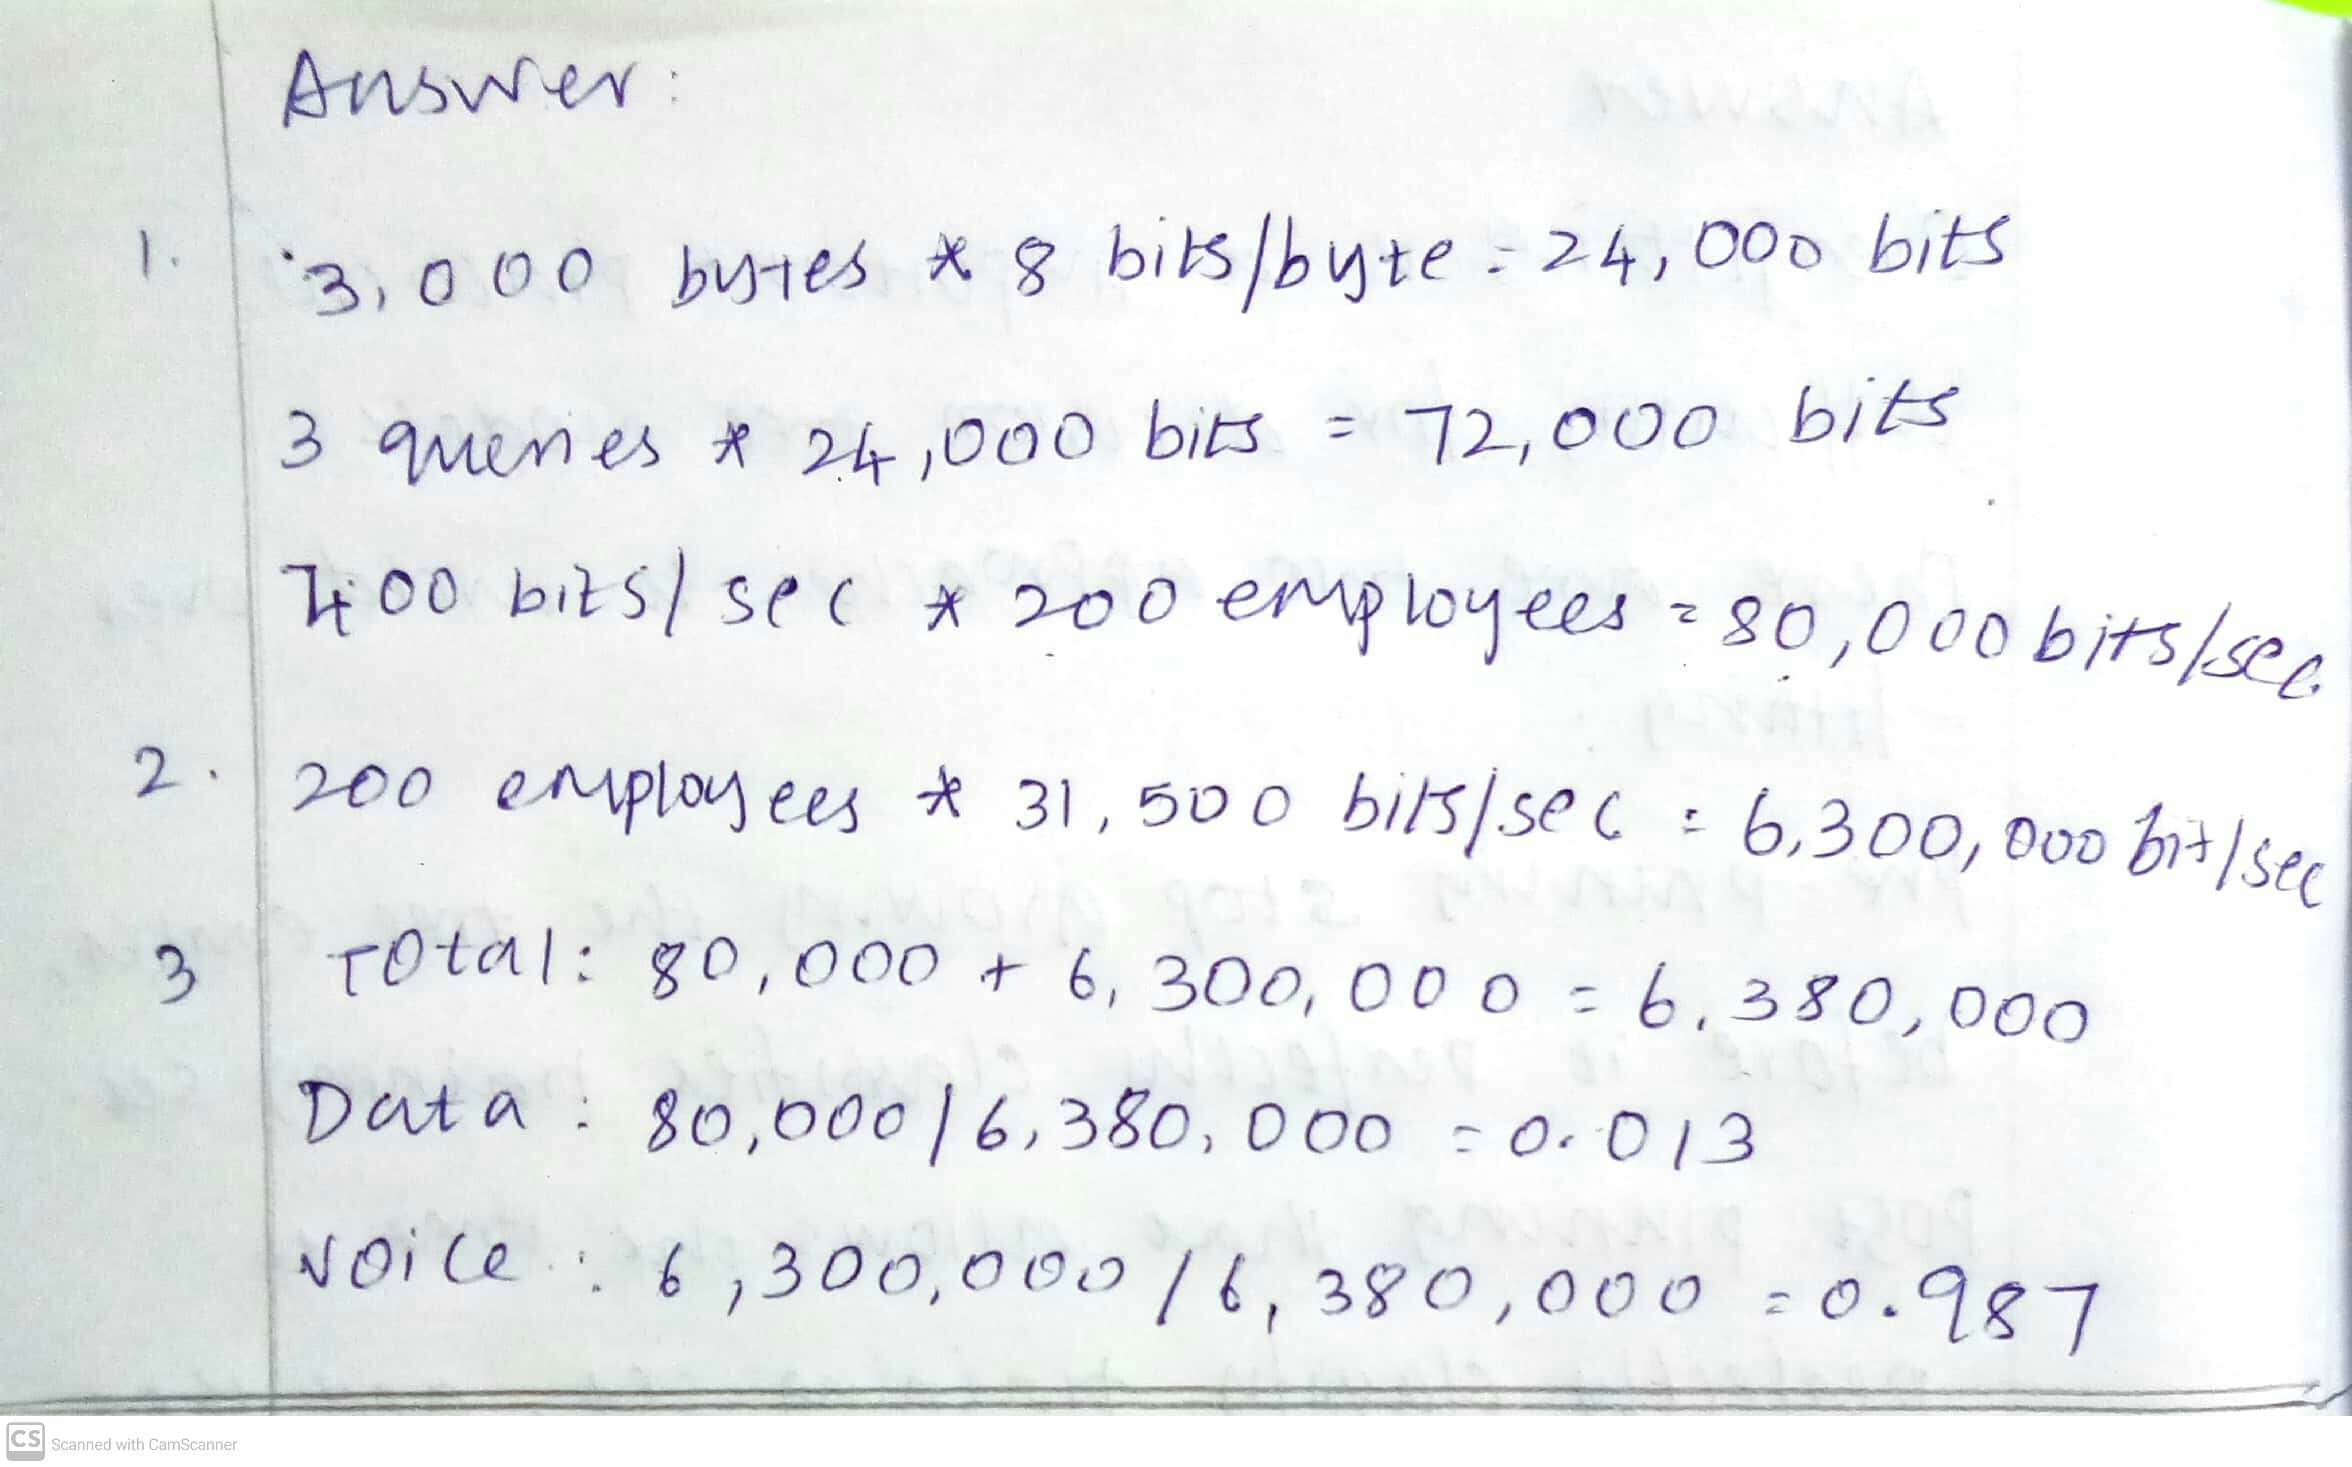 Answer:
1. 3,000 bytes * 8 bits/byte = 24,000 bits
3 queries * 24,000 bits = 72,000 bits
400 bits/sec * 200 employees = 80,000 bits/sec
2. 200 employees * 31,500 bits/sec = 6,300,000 bit/sec
3 Total: 80,000 + 6,300,000 = 6,380,000
Data: 80,000/6,380,000 = 0.013
Voice: 6,300,000/6,380,000 = 0.987
CS Scanned with CamScanner